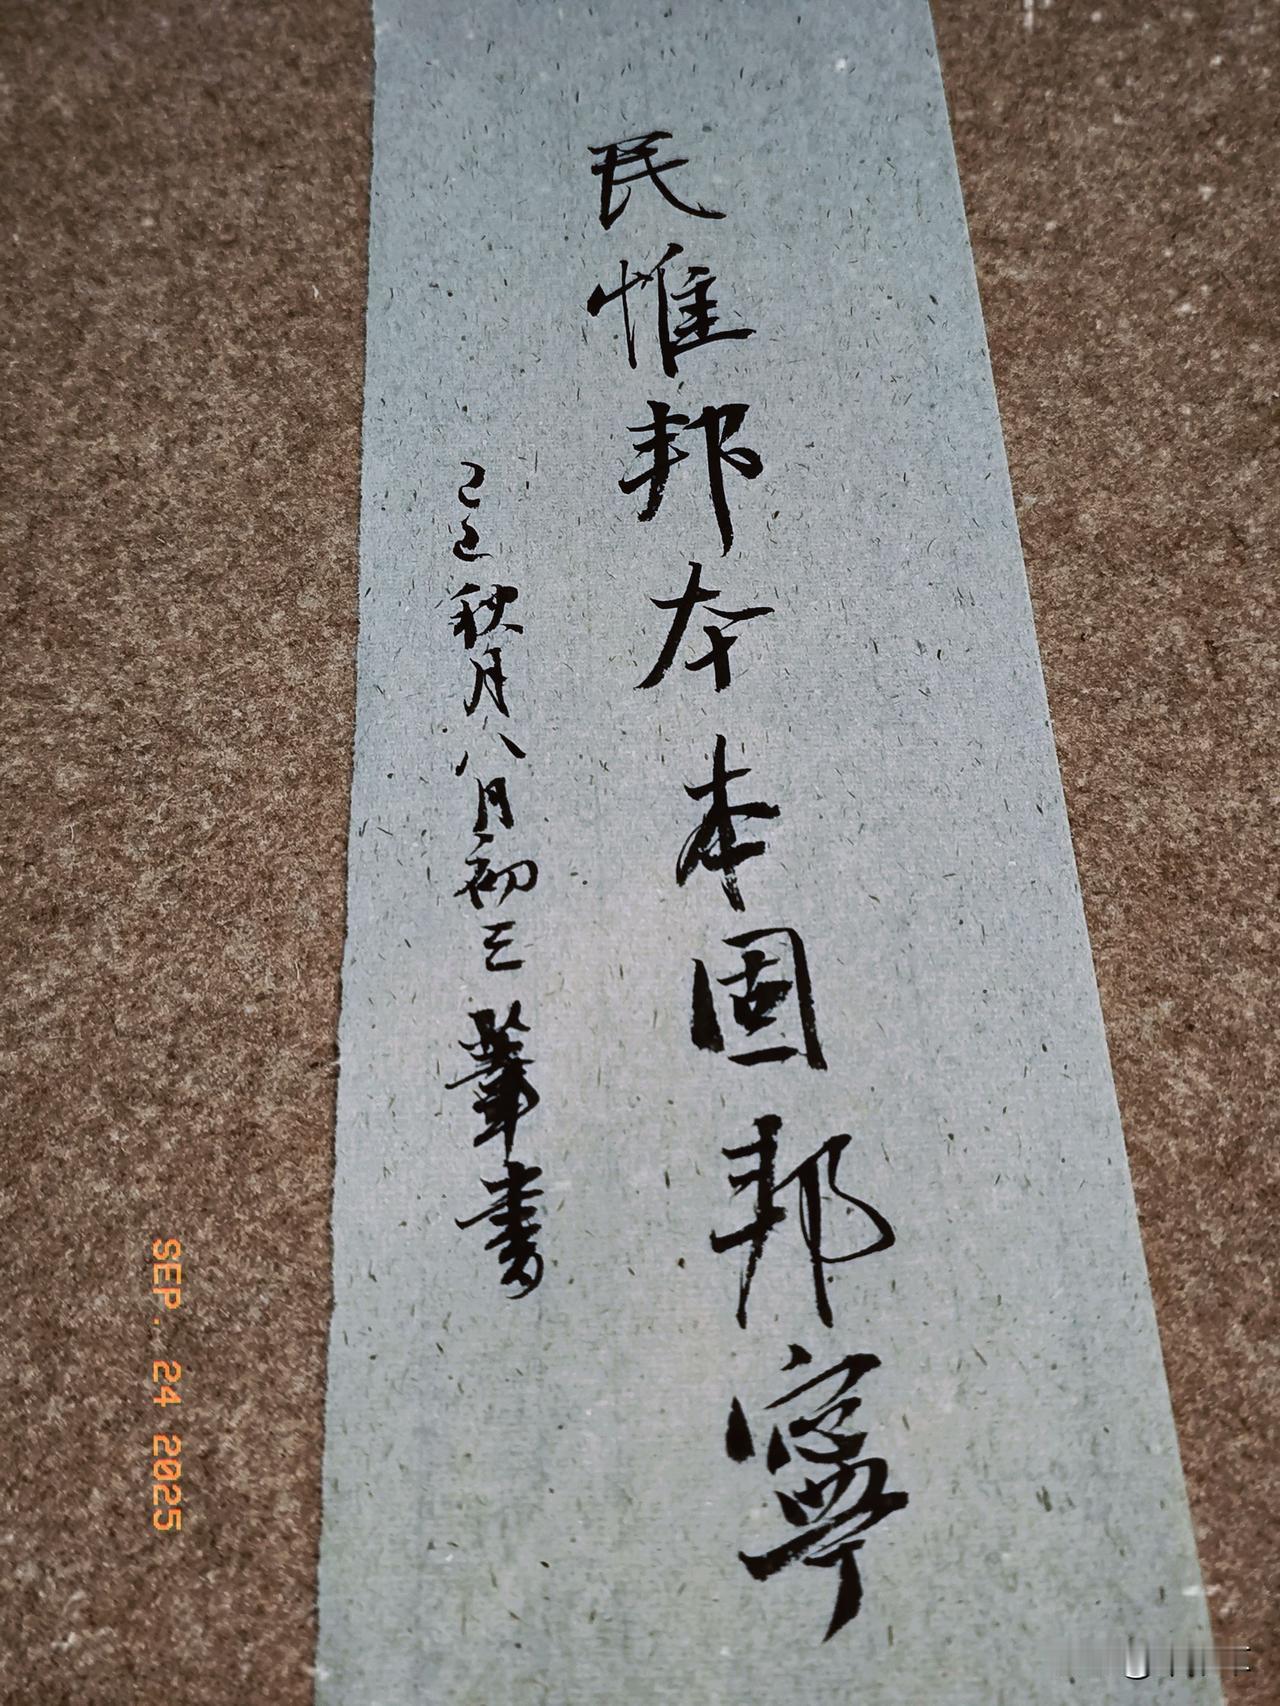 民惟邦本本固邦寧
乙巳秋月八月初三 葦書
SEP. 24 2025